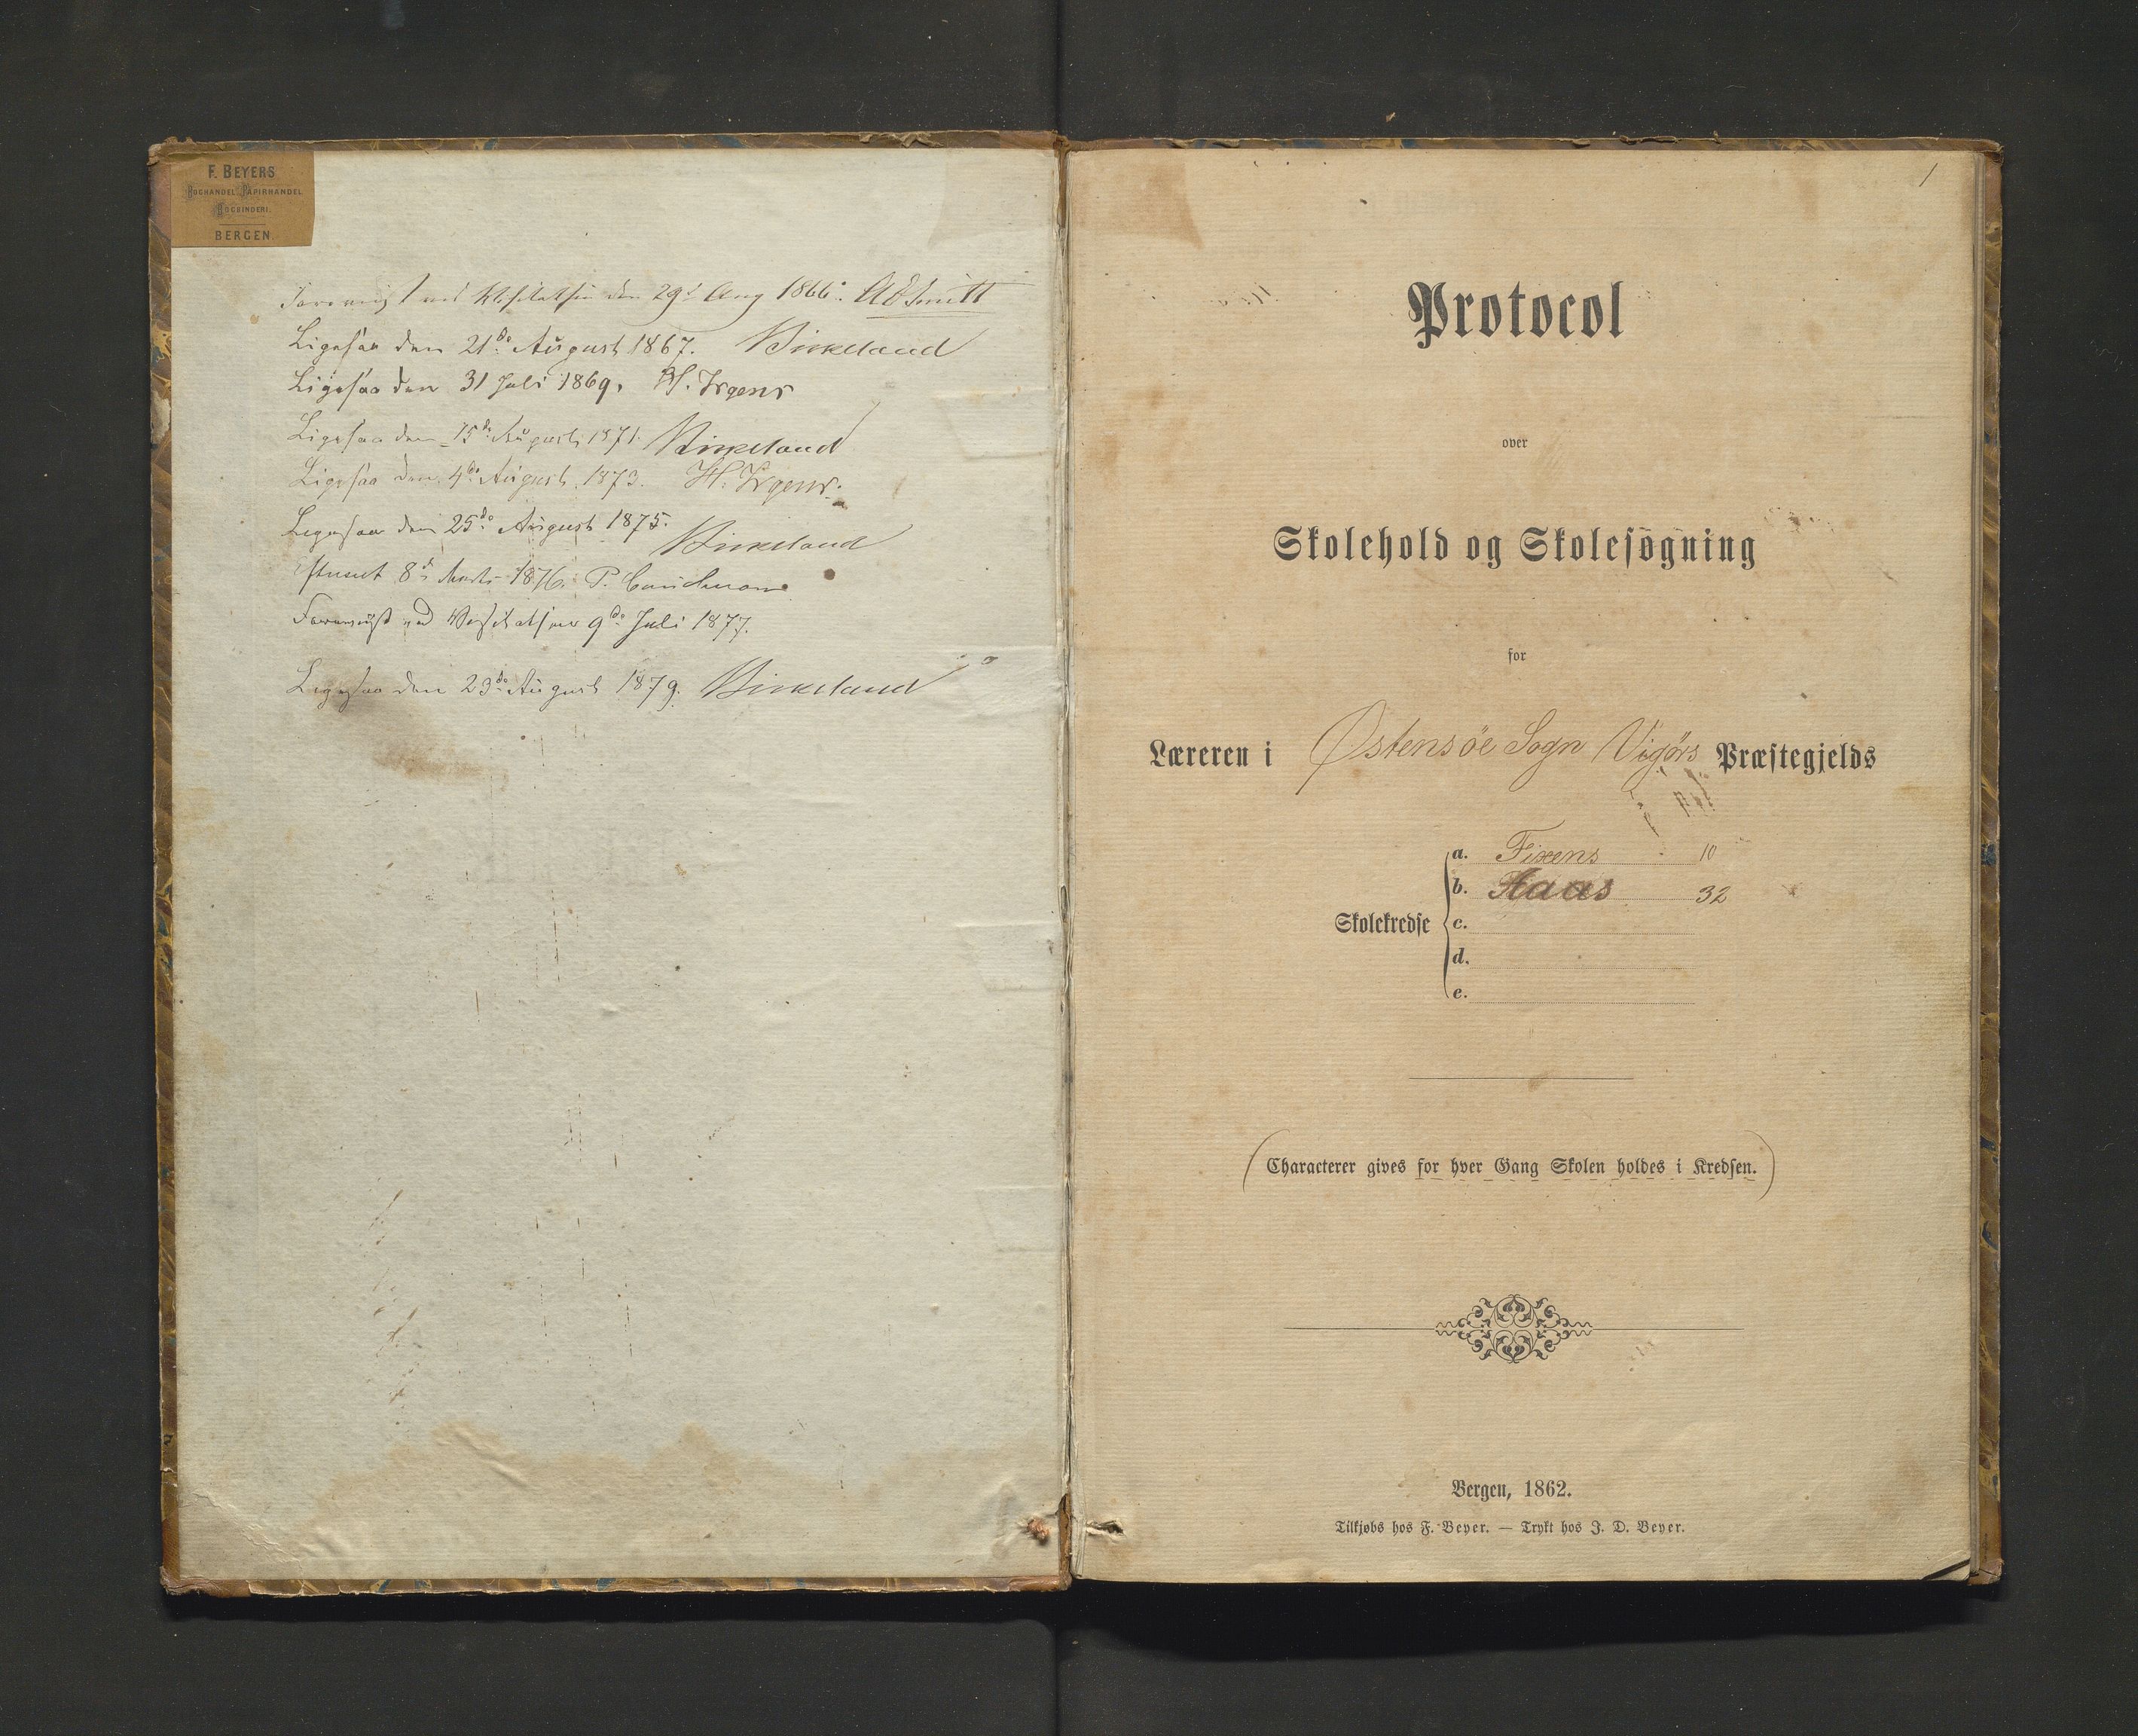 F. BEYERS
BOGHANDEL PAPIRHANDEL
BOGBINDERI.
BERGEN.
Forevist ved Visitatsen den 29de Aug 1866.
Ligesaa den 21de August 1867. Birkeland
Ligesaa den 31 Juli 1869. H. Irgens
Ligesaa den 15de August 1871. Birkeland
Ligesaa den 4de August 1873. H. Irgens.
Ligesaa den 25de August 1875.
Birkeland
8de Marts 1876. P.
Forevist ved Visitatsen 9de Juli 1877.
Ligesaa den 23de August 1879. Birkeland
1
Protocol
over
Skolehold og Skolesögning
for
Læreren i Østensöe Sogn Vigörs Præstegjelds
Skolekredse
a. Fixens 10
b. Aaas 32
c.
d.
e.
(Characterer gives for hver Gang Skolen holdes i Kredsen.)
Bergen, 1862.
Tilkjøbs hos F. Beyer. — Trykt hos J. D. Beyer.